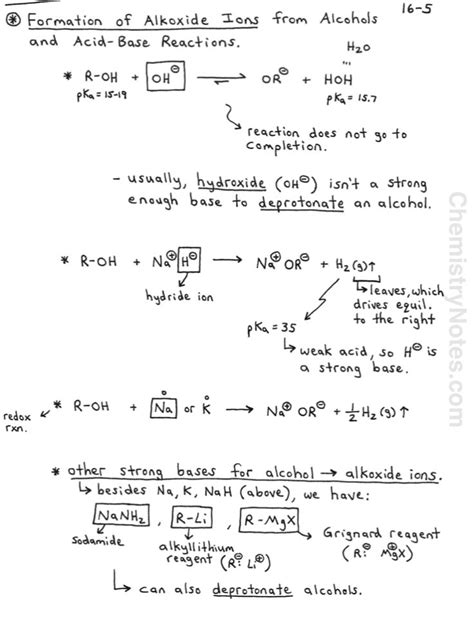 16-5
⊛ Formation of Alkoxide Ions from Alcohols
and Acid-Base Reactions.
H₂O
* R-OH + OH⊖ ⇌ OR⊖ + HOH
pKa = 15-19 pKa = 15.7
reaction does not go to
completion.
- usually, hydroxide (OH⊖) isn't a strong
enough base to deprotonate an alcohol.
* R-OH + Na⊕ H⊖ → Na⊕ OR⊖ + H₂(g)↑
hydride ion
↳ leaves, which
drives equil.
to the right
pKa = 35
↳ weak acid, so H⊖ is
a strong base.
redox rxn. ↙ * R-OH + Na° or K° → Na⊕ OR⊖ + ½ H₂(g) ↑
* other strong bases for alcohol → alkoxide ions.
↳ besides Na, K, NaH (above), we have:
NaNH₂, R-Li, R-MgX
sodamide
alkyllithium
reagent (R:⊖ Li⊕)
Grignard reagent
(R:⊖ MgX⊕)
↳ can also deprotonate alcohols.
ChemistryNotes.com